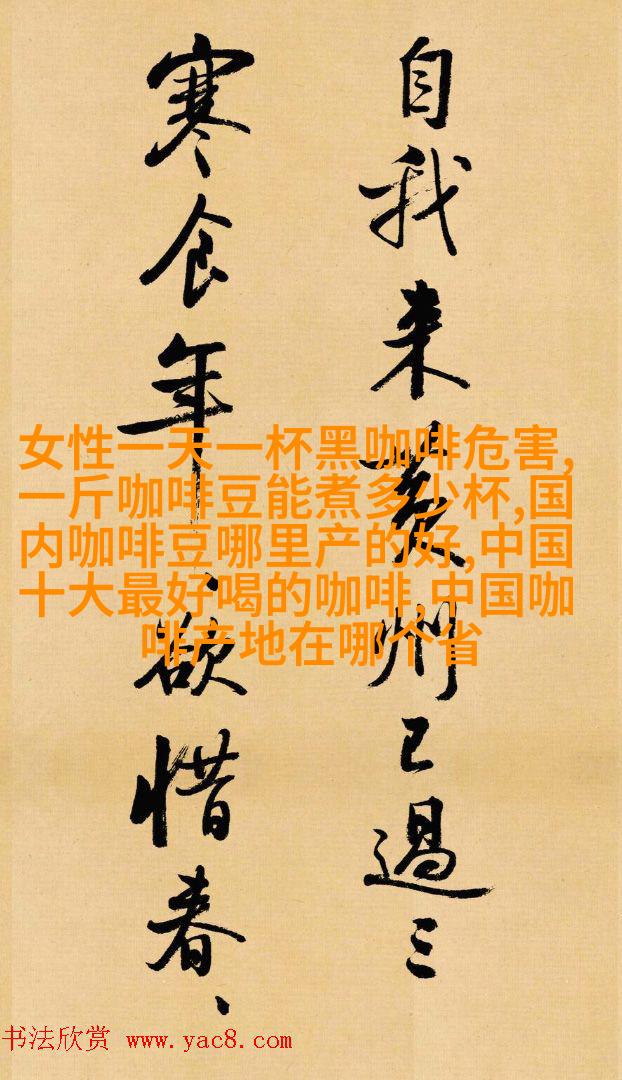 自我来黄州已過三
寒食年、欲惜春、
女性一天一杯黑咖啡危害,
一斤咖啡豆能煮多少杯,国
内咖啡豆哪里产的好,中国
十大最好喝的咖啡,中国咖
啡产地在哪个省
书法欣赏 www.yac8.com